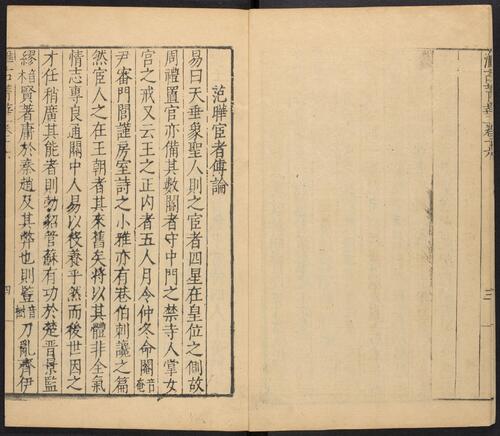 范曄宦者傳論
易曰天垂象聖人則之宦者四星在皇位之側故
周禮置官亦備其數閽者守中門之禁寺人掌女
宮之戒又云王之正內者五人月令仲冬命閹音奄
尹審門閭謹房室詩之小雅亦有巷伯刺讒之篇
然宦人之在王朝者其來舊矣將以其體非全氣
情志專良通關中人易以役養乎然而後世因之
才任稍廣其能者則勃紹管蘇有功於楚晉景監
繆音木賢著庸於秦趙及其弊也則豎音樹刀亂齊伊
四
三